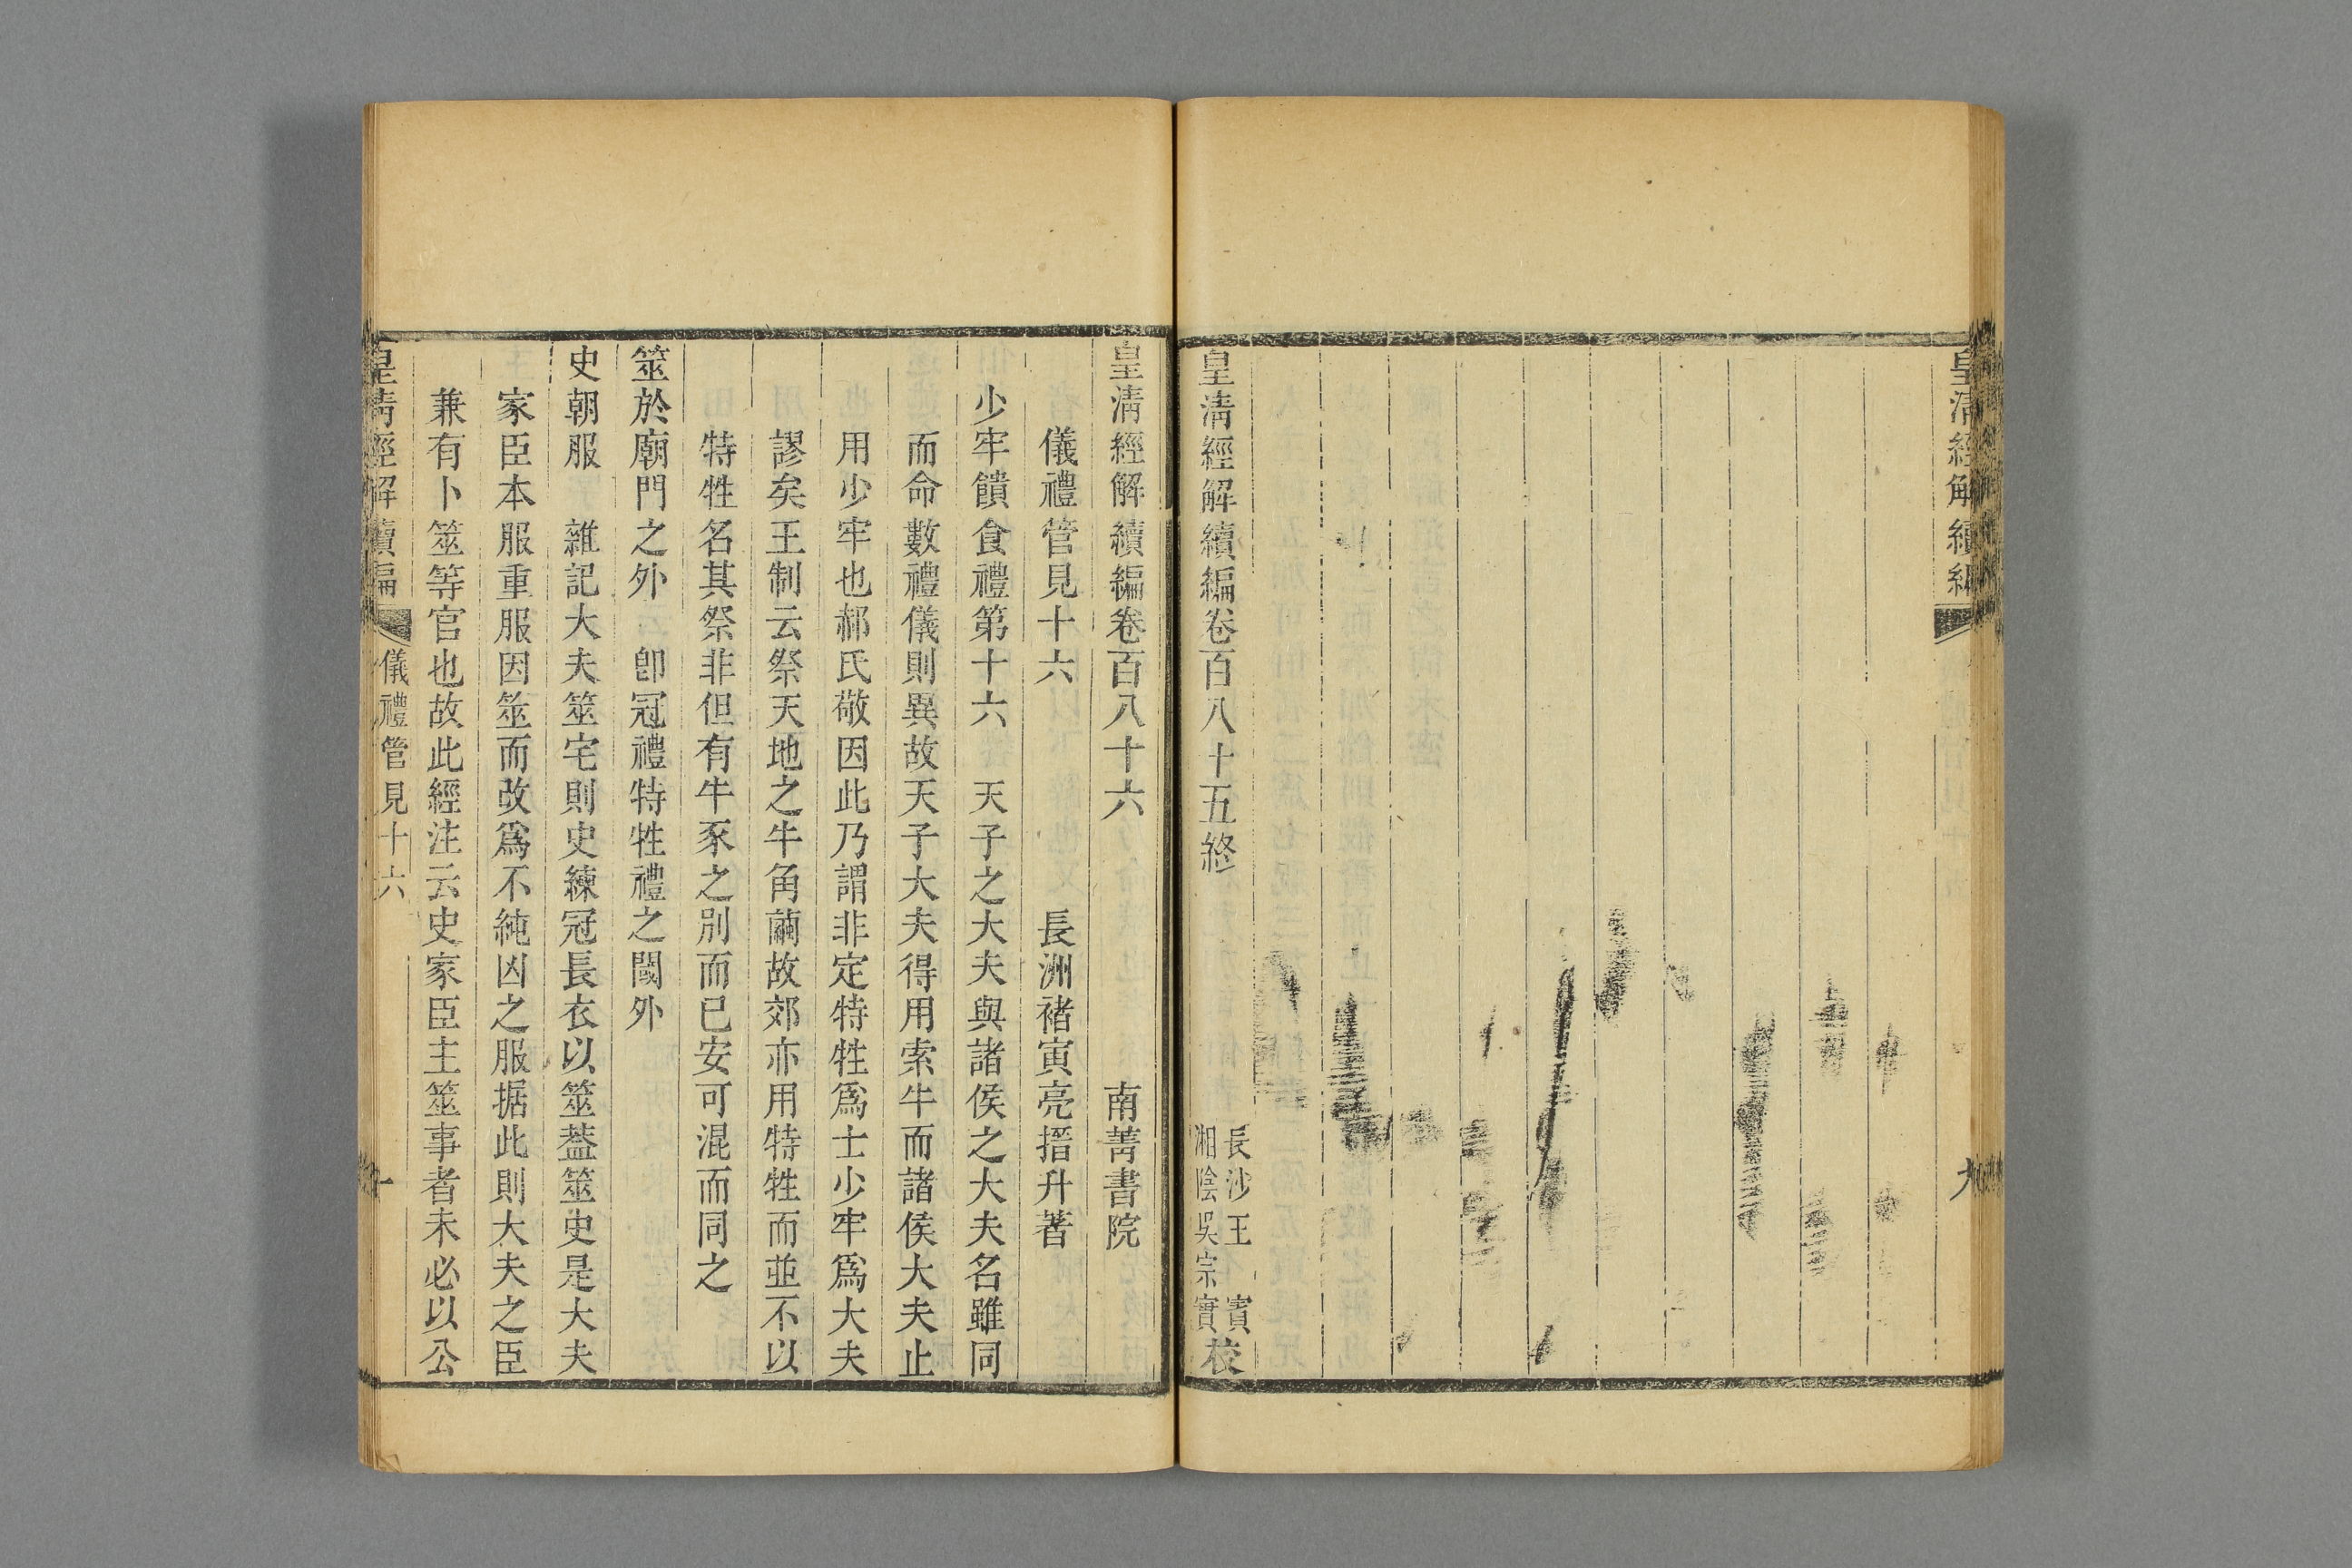 皇清經解續編
九
皇清經解續編卷百八十五終
長沙王 賓
湘陰吳宗實
校
皇清經解續編卷百八十六 南菁書院
儀禮管見十六 長洲褚寅亮搢升著
少牢饋食禮第十六 天子之大夫與諸侯之大夫名雖同
而命數禮儀則異故天子大夫得用索牛而諸侯大夫止
用少牢也郝氏敬因此乃謂非定特牲爲士少牢爲大夫
謬矣王制云祭天地之牛角繭故郊亦用特牲而並不以
特牲名其祭非但有牛豕之別而已安可混而同之
筮於廟門之外 卽冠禮特牲禮之闑外
史朝服 雜記大夫筮宅則史練冠長衣以筮葢筮史是大夫
家臣本服重服因筮而改爲不純凶之服据此則大夫之臣
兼有卜筮等官也故此經注云史家臣主筮事者未必以公
皇清經解續編 儀禮管見十六
一